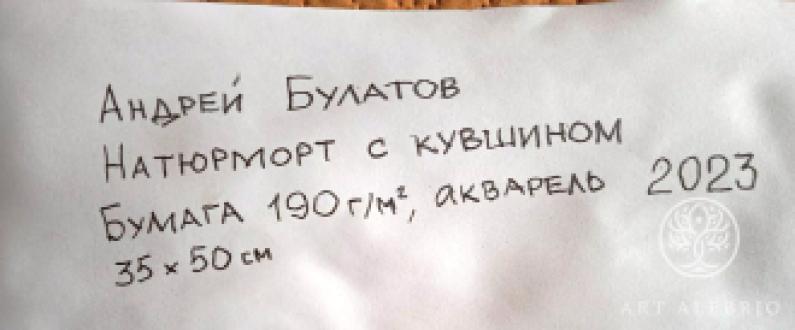 Андрей Булатов
Натюрморт с кувшином
Бумага 190 г/м², акварель 2023
35 x 50 см
ART ALEBRIO